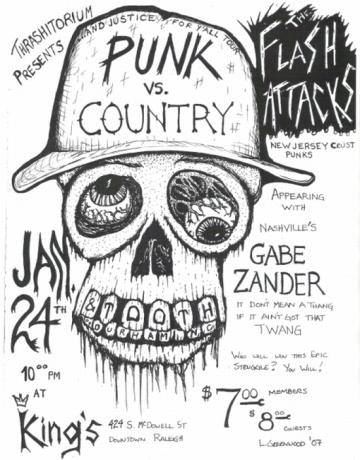 THRASHITORIUM
PRESENTS
AND JUSTICE FOR Y'ALL TOUR
PUNK
VS.
COUNTRY
THE
FLASH
ATTACKS
NEW JERSEY CRUST
PUNKS
APPEARING
WITH
NASHVILLE'S
GABE
ZANDER
IT DON'T MEAN A THANG
IF IT AIN'T GOT THAT
TWANG
WHO WILL WIN THIS EPIC
STRUGGLE? YOU WILL!
JAN.
24TH
10:00 PM
AT
King's
424 S. McDOWELL ST
DOWNTOWN RALEIGH
& TOOTH
DURHAM, NC
$7.00 MEMBERS
$8.00 GUESTS
L. GREENWOOD '07